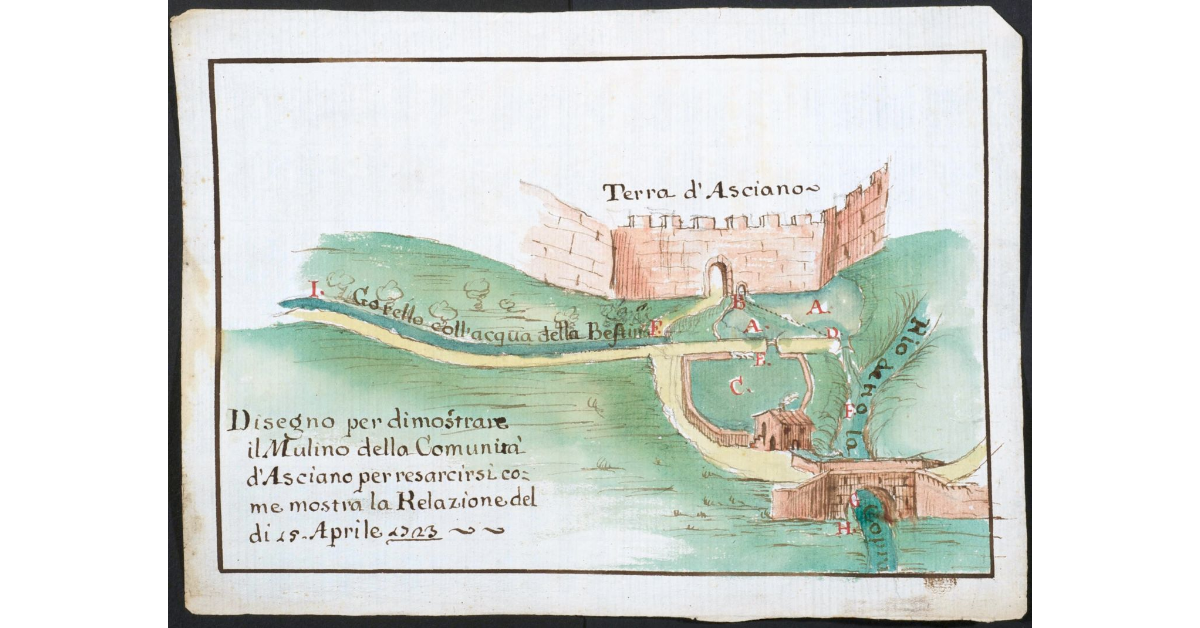 Terra d'Asciano~
I.
Gorello coll'acqua della Bestina
E.
B
A.
A.
D.
B.
C.
F.
Rio detto la
Copra
G
H.
Disegno per dimostrare
il Mulino della Comunità
d'Asciano per resarcirsi co=
me mostra la Relazione del
di 15. Aprile 1723 ~ ~